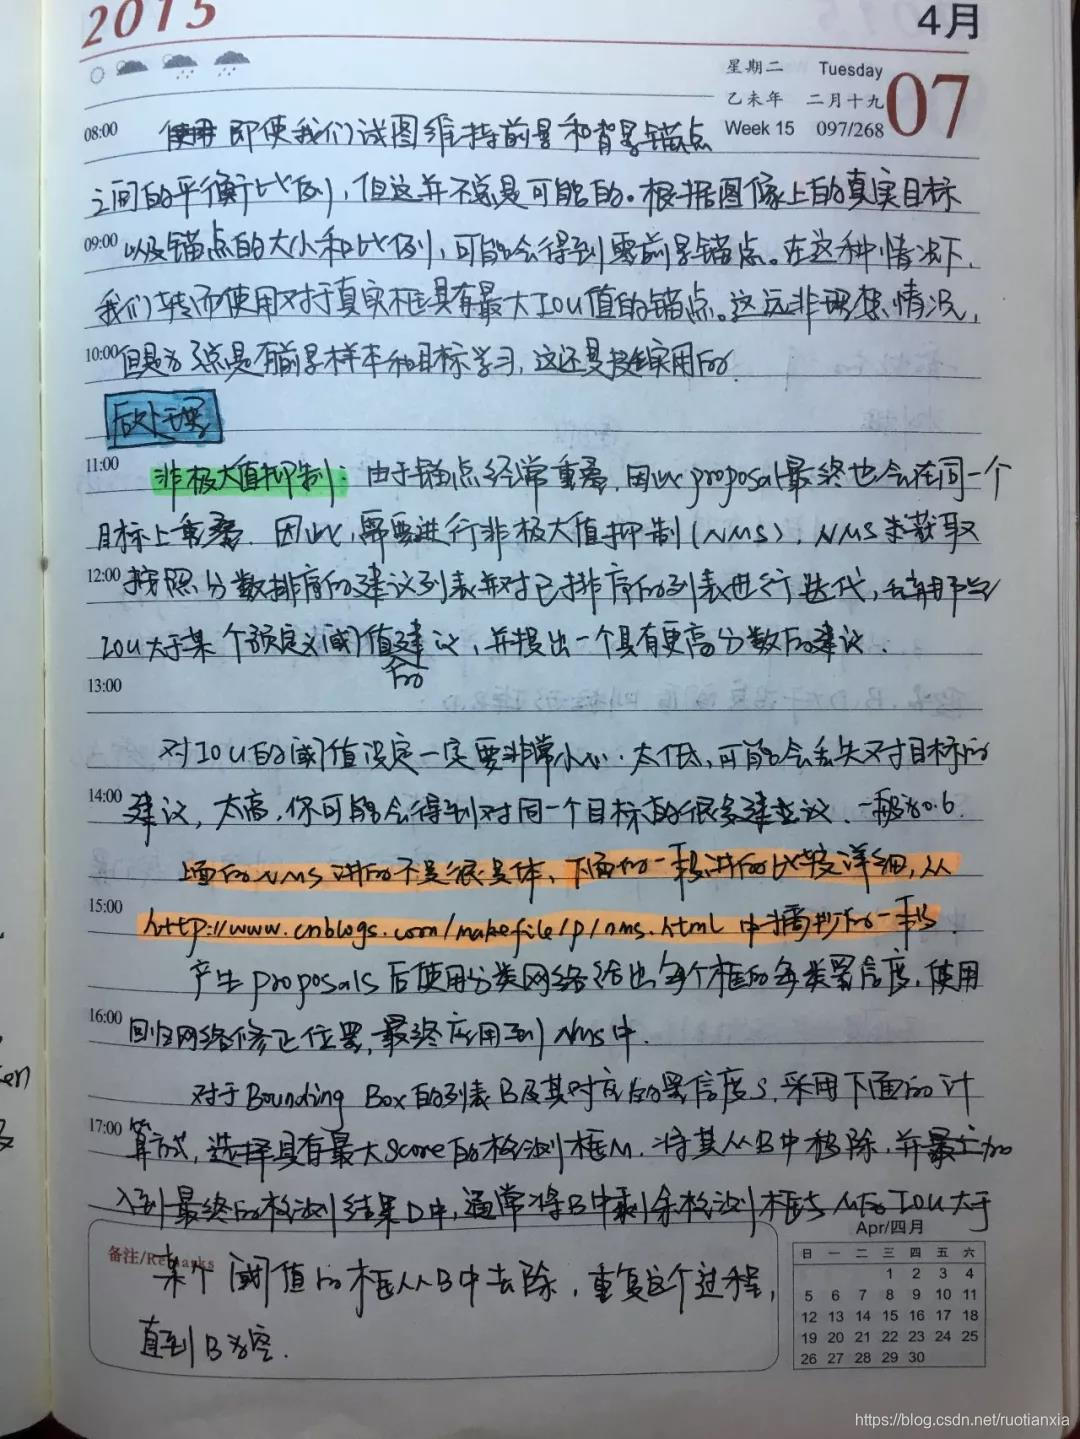 2015
4月
星期二 Tuesday
07
乙未年 二月十九
Week 15 097/268
08:00 使用 即使我们试图维持前景和背景锚点
之间的平衡比例,但这并不总是可能的。根据图像上的真实目标
09:00 以及锚点的大小和比例,可能会得到零前景锚点。在这种情况下,
我们转而使用对于真实框具有最大IOU值的锚点。这远非理想情况,
10:00 但是为了总是有前景样本和目标学习,这还是挺实用的.
后处理
11:00 非极大值抑制: 由于锚点经常重叠,因此proposal最终也会在同一个
目标上重叠. 因此,需要进行非极大值抑制(NMS). NMS来获取
12:00 按照分数排序的建议列表并对已排序的列表进行迭代,丢弃那些
IOU大于某个预定义阈值建议,并提出一个具有更高分数的建议.
的
13:00
对IOU的阈值设定一定要非常小心. 太低,可能会丢失对目标的
14:00 建议,太高,你可能会得到对同一个目标的很多建议. 一般为0.6.
上面的NMS讲的不是很具体,下面的一段讲的比较详细,从
15:00 http://www.cnblogs.com/makefile/p/nms.html 中摘抄的一段.
产生proposals后使用分类网络给出每个框的每类置信度,使用
16:00 回归网络修正位置,最终应用到NMS中.
对于Bounding Box的列表B及其对应的置信度S,采用下面的计
17:00 算方式,选择具有最大score的检测框M,将其从B中移除,并最终加
入到最终的检测结果D中,通常将B中剩余检测框与M的IOU大于
备注/Remarks
某个阈值的框从B中去除,重复这个过程,
直到B为空.
Apr/四月
日 一 二 三 四 五 六
1 2 3 4
5 6 7 8 9 10 11
12 13 14 15 16 17 18
19 20 21 22 23 24 25
26 27 28 29 30
https://blog.csdn.net/ruotianxia